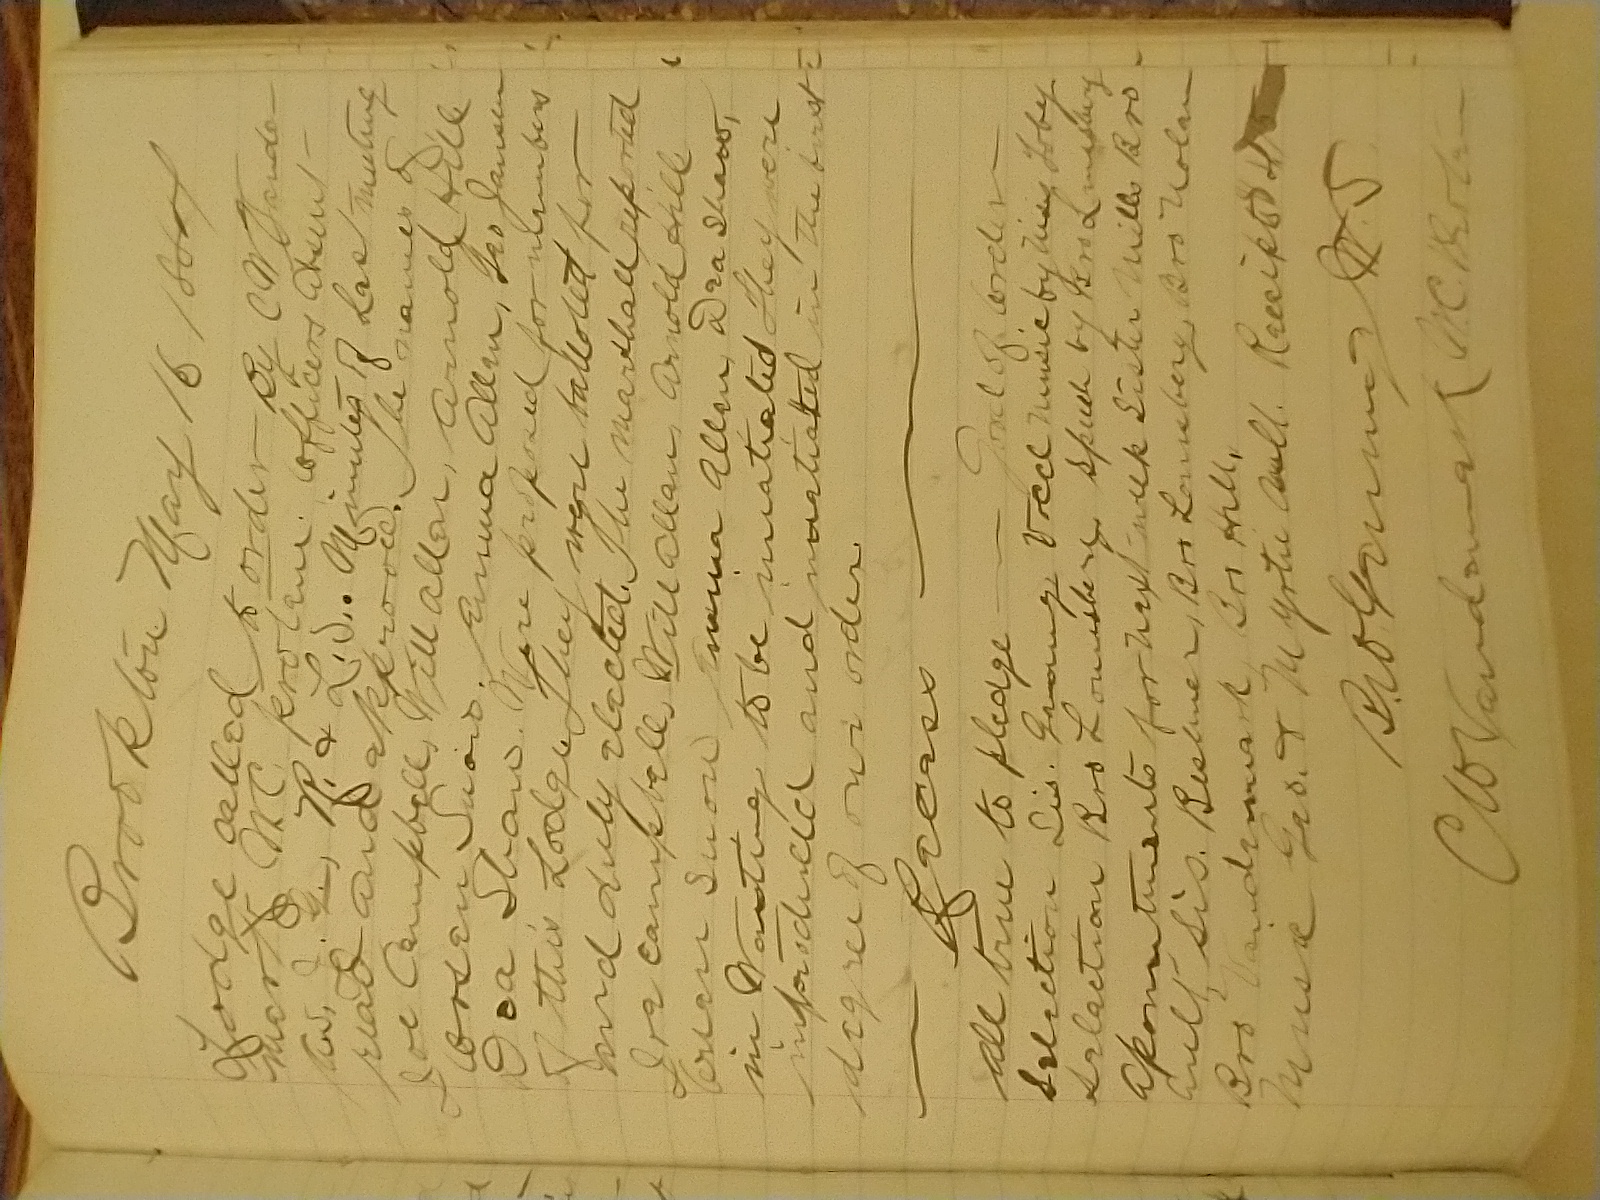 Brookton May 16 1884
Lodge called to order By C W Vande-
mark W.C. protem. Officers absent
I. G., R. & L. S.. Minutes of Last meeting
read and approved. The names of
Joe Campbell, Will Allen, Arnold Hill
Orsen Snow. Emma Allen, Geo Jansen
Dea Shaw. Were proposed for members
of this Lodge. They were balloted for
and duly elected. The marshall reported
Joe Campbell, Will Allen, Arnold Hill
Orsen Snow Emma Allen, Dea Shaw,
in Waiting to be inatiated They were
introduced and inatiated in the first
degree of our order.
Recess
all true to pledge Good of order
Selection Sis. Vocel music by Miss Toby
Selection Bro Lounsbery, Speech by Bro Lounsbery
Apointments for next week Sister Mills Bro
Ault, Sis. Beshmer, Bro Lounsbery, Bro Nolan
Bro Vandermark, Bro Hill,
Music Geo. & Myrtie Ault. Receipts
Bro W. S
C W Vandemark W.C. Protem